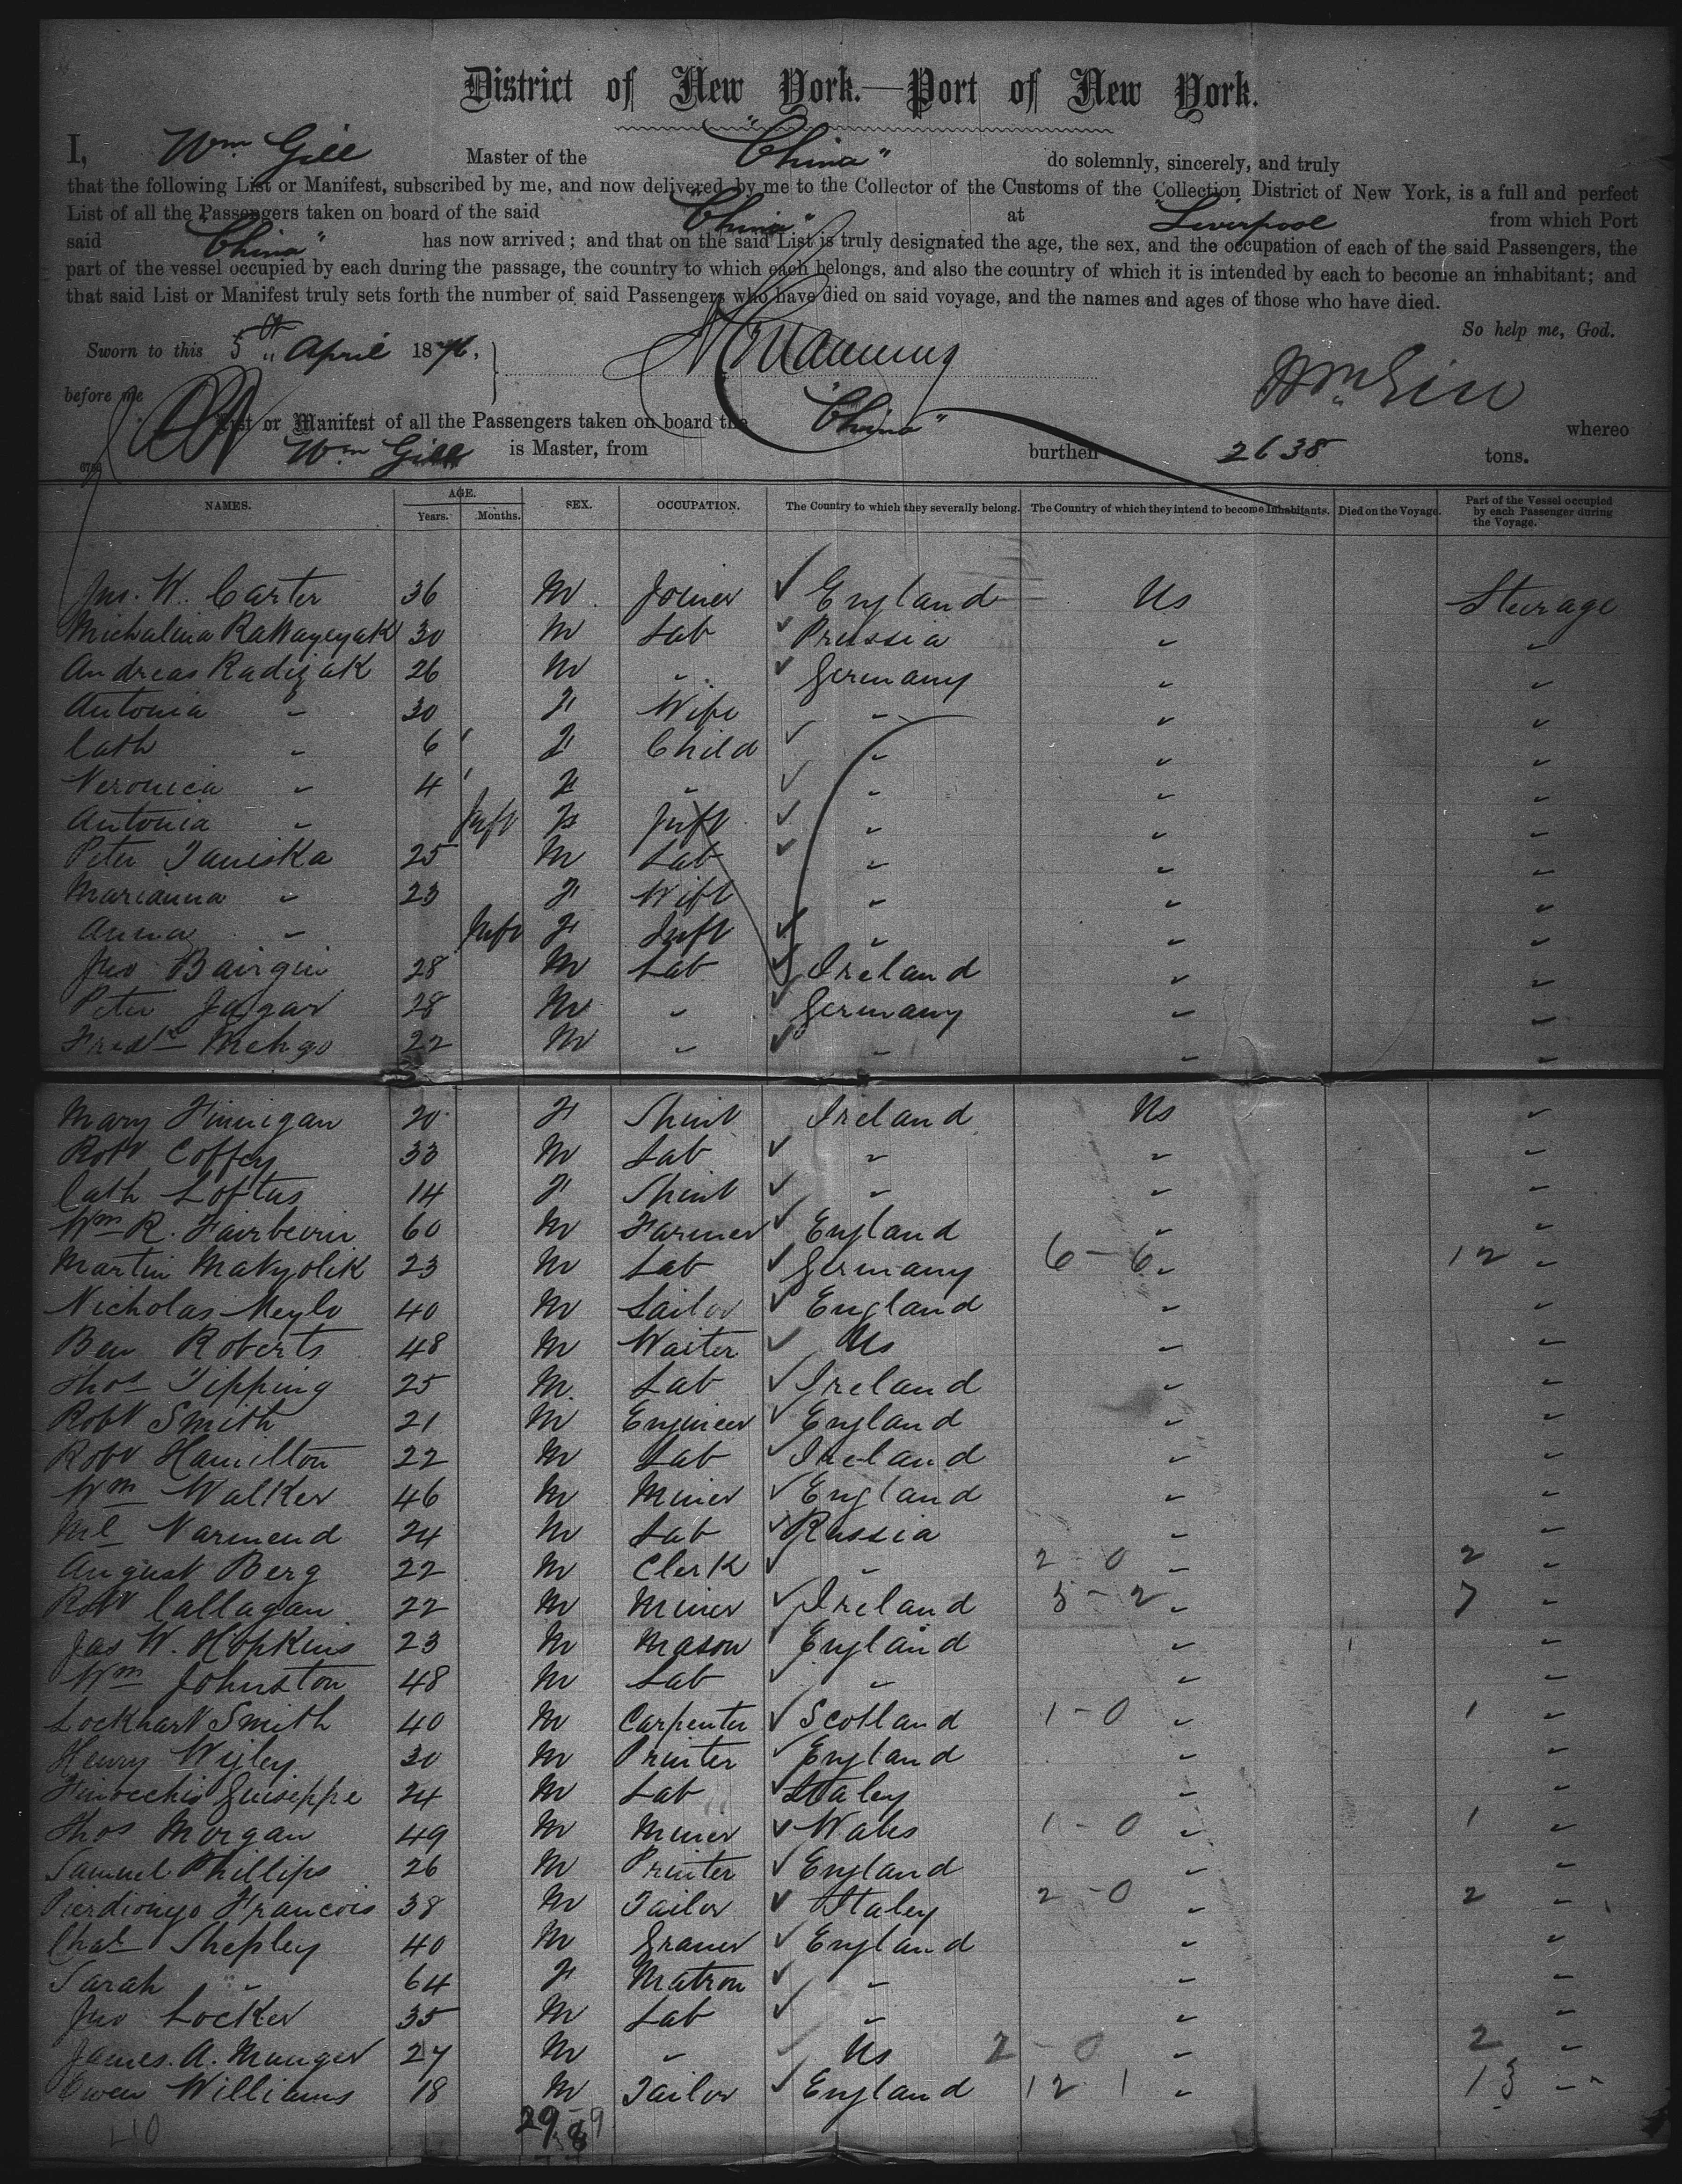 District of New York.—Port of New York.
I, Wm Gill Master of the "China" do solemnly, sincerely, and truly
that the following List or Manifest, subscribed by me, and now delivered by me to the Collector of the Customs of the Collection District of New York, is a full and perfect
List of all the Passengers taken on board of the said "China" at Liverpool from which Port
said "China" has now arrived; and that on the said List is truly designated the age, the sex, and the occupation of each of the said Passengers, the
part of the vessel occupied by each during the passage, the country to which each belongs, and also the country of which it is intended by each to become an inhabitant; and
that said List or Manifest truly sets forth the number of said Passengers who have died on said voyage, and the names and ages of those who have died.
So help me, God.
Sworn to this 5th April 1876.
before me Wm Gill
List or Manifest of all the Passengers taken on board the "China" whereo
Wm Gill is Master, from burthen 2638 tons.
NAMES. AGE. Years. Months. SEX. OCCUPATION. The Country to which they severally belong. The Country of which they intend to become Inhabitants. Died on the Voyage. Part of the Vessel occupied by each Passenger during the Voyage.
Jno. W. Carter 36 M Joiner ✓ England Us Steerage
30 M Lab ✓ Prussia " "
Andreas Radizak 26 M " ✓ Germany " "
Antonia " 30 F Wife " " "
Cath " 6 F Child ✓ " " "
Veronica " 4 F " ✓ " " "
Antonia " Inft F Inft ✓ " " "
Peter Taniska 25 M Lab ✓ " " "
Marianna " 23 F Wife " " "
Anna " Inft F Inft ✓ " " "
Jno Bairgin 28 M Lab ✓ Ireland " "
Peter Jagar 28 M " ✓ Germany " "
Fredk 22 M " ✓ " " "
Mary Finnigan 20 F Ireland Us "
Robt Coffey 33 M Lab ✓ " " "
Cath Loftus 14 F ✓ " " "
Wm R. Fairbeirn 60 M Farmer ✓ England " "
Martin Matyolik 23 M Lab ✓ Germany 6 - 6 " 12 "
Nicholas Meylo 40 M Sailor ✓ England " "
Ben Roberts 48 M Waiter ✓ Us " "
Thos Tipping 25 M. Lab ✓ Ireland " "
Robt Smith 21 M Engineer ✓ England " "
Robt Hamilton 22 M Lab ✓ Ireland " "
Wm Walker 46 M Miner ✓ England " "
Ml Narmend 24 M Lab ✓ Russia " "
August Berg 22 M Clerk ✓ " 2 - 0 " 2 "
Robt Callagan 22 M Miner ✓ Ireland 5 - 2 " 7 "
Jas W. Hopkins 23 M Mason ✓ England " "
Wm Johnston 48 M Lab ✓ " " "
Lockhart Smith 40 M Carpenter ✓ Scotland 1 - 0 " 1 "
Henry Wigley 30 M Printer ✓ England " "
Finocchio Guiseppe 24 M Lab ✓ Italey " "
Thos Morgan 49 M Miner ✓ Wales 1 - 0 " 1 "
Samuel Phillips 26 M Printer ✓ England " "
Pierdionyo Francois 38 M Tailor ✓ Italey 2 - 0 " 2 "
Chas Shepley 40 M ✓ England " "
Sarah " 64 F Matron ✓ " " "
Jno Locker 35 M Lab ✓ " " "
James. A. Munger 27 M " ✓ Us 2 - 0 " 2 "
Owen Williams 18 M Tailor ✓ England 12 1 " 13 "
40 29